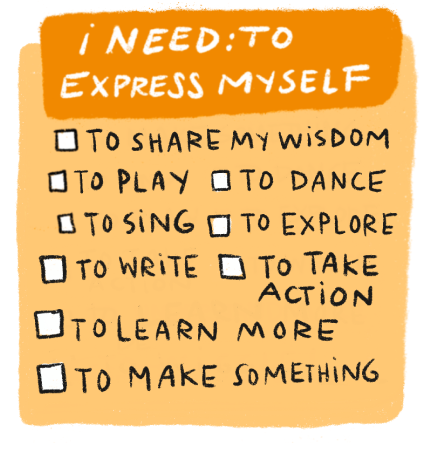 i NEED: TO
EXPRESS MYSELF
TO SHARE MY WiSDOM
TO PLAY TO DANCE
TO SiNG TO EXPLORE
TO WRiTE TO TAKE
ACTiON
TO LEARN MORE
TO MAKE SOMETHiNG